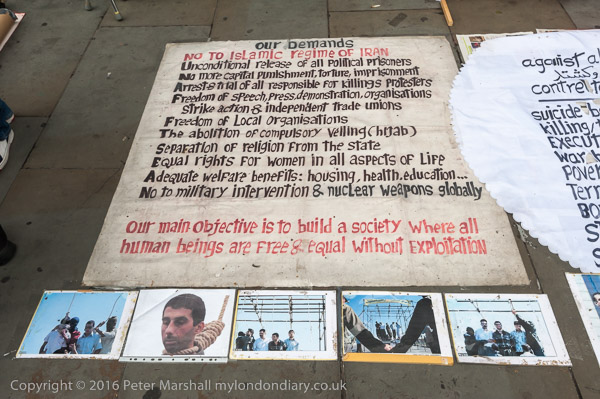 Our Demands
NO TO ISLAMIC REGIME OF IRAN
UNCONDITIONAL RELEASE OF ALL POLITICAL PRISONERS
NO MORE CAPITAL PUNISHMENT, TORTURE, IMPRISONMENT
ARREST & TRIAL OF ALL RESPONSIBLE FOR KILLINGS PROTESTERS
FREEDOM OF SPEECH, PRESS, DEMONSTRATION, ORGANISATIONS
STRIKE ACTION & INDEPENDENT TRADE UNIONS
FREEDOM OF LOCAL ORGANISATIONS
THE ABOLITION OF COMPULSORY VEILING (HIJAB)
SEPARATION OF RELIGION FROM THE STATE
EQUAL RIGHTS FOR WOMEN IN ALL ASPECTS OF LIFE
ADEQUATE WELFARE BENEFITS: HOUSING, HEALTH, EDUCATION...
NO TO MILITARY INTERVENTION & NUCLEAR WEAPONS GLOBALLY
OUR MAIN OBJECTIVE IS TO BUILD A SOCIETY WHERE ALL
HUMAN BEINGS ARE FREE & EQUAL WITHOUT EXPLOITATION
against a
control
suicide b
killing/
Execut
War
pover
Terr
Copyright © 2016 Peter Marshall mylondondiary.co.uk